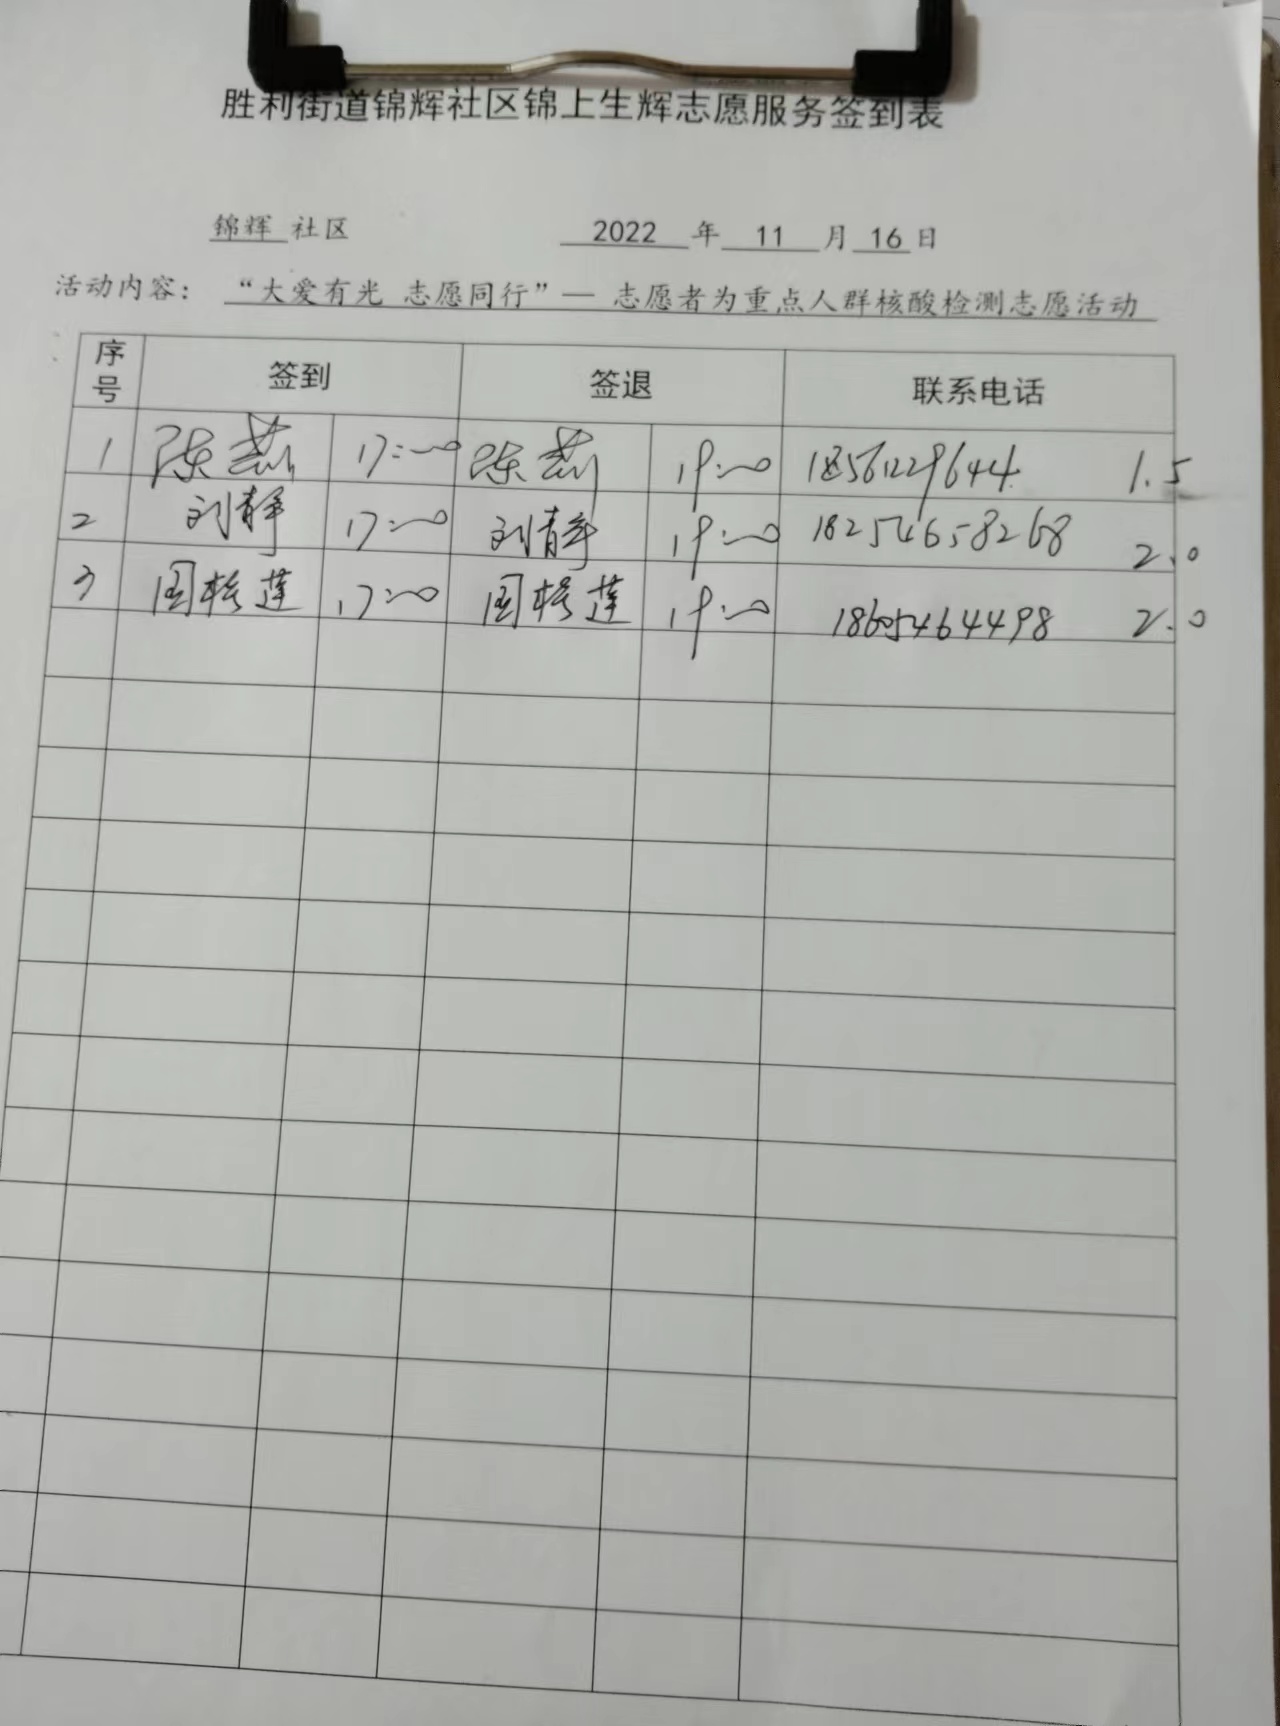 胜利街道锦辉社区锦上生辉志愿服务签到表
锦辉 社区 2022 年 11 月 16 日
活动内容： “大爱有光 志愿同行”— 志愿者为重点人群核酸检测志愿活动
序号 签到 签退 联系电话
1 陈燕 17:00 陈燕 19:00 18561229644 1.5
2 刘静 17:00 刘静 19:00 18254658268 2.0
3 17:00 19:00 18605464498 2.0